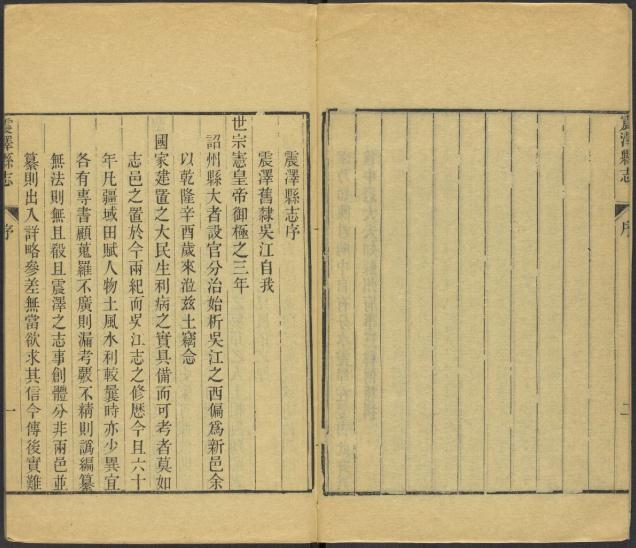 震澤縣志 序 二
震澤縣志序
震澤舊隸吳江自我
世宗憲皇帝御極之三年
詔州縣大者設官分治始析吳江之西偏爲新邑余
以乾隆辛酉歲來涖兹土竊念
國家建置之大民生利病之實具備而可考者莫如
志邑之置於今兩紀而吳江志之修歴今且六十
年凡疆域田賦人物土風水利較曩時亦少異宜
各有專書顧蒐羅不廣則漏考覈不精則譌編纂
無法則蕪且殽且震澤之志事創體分非兩邑並
纂則出入詳略參差無當欲求其信今傳後實難
震澤縣志 序 一